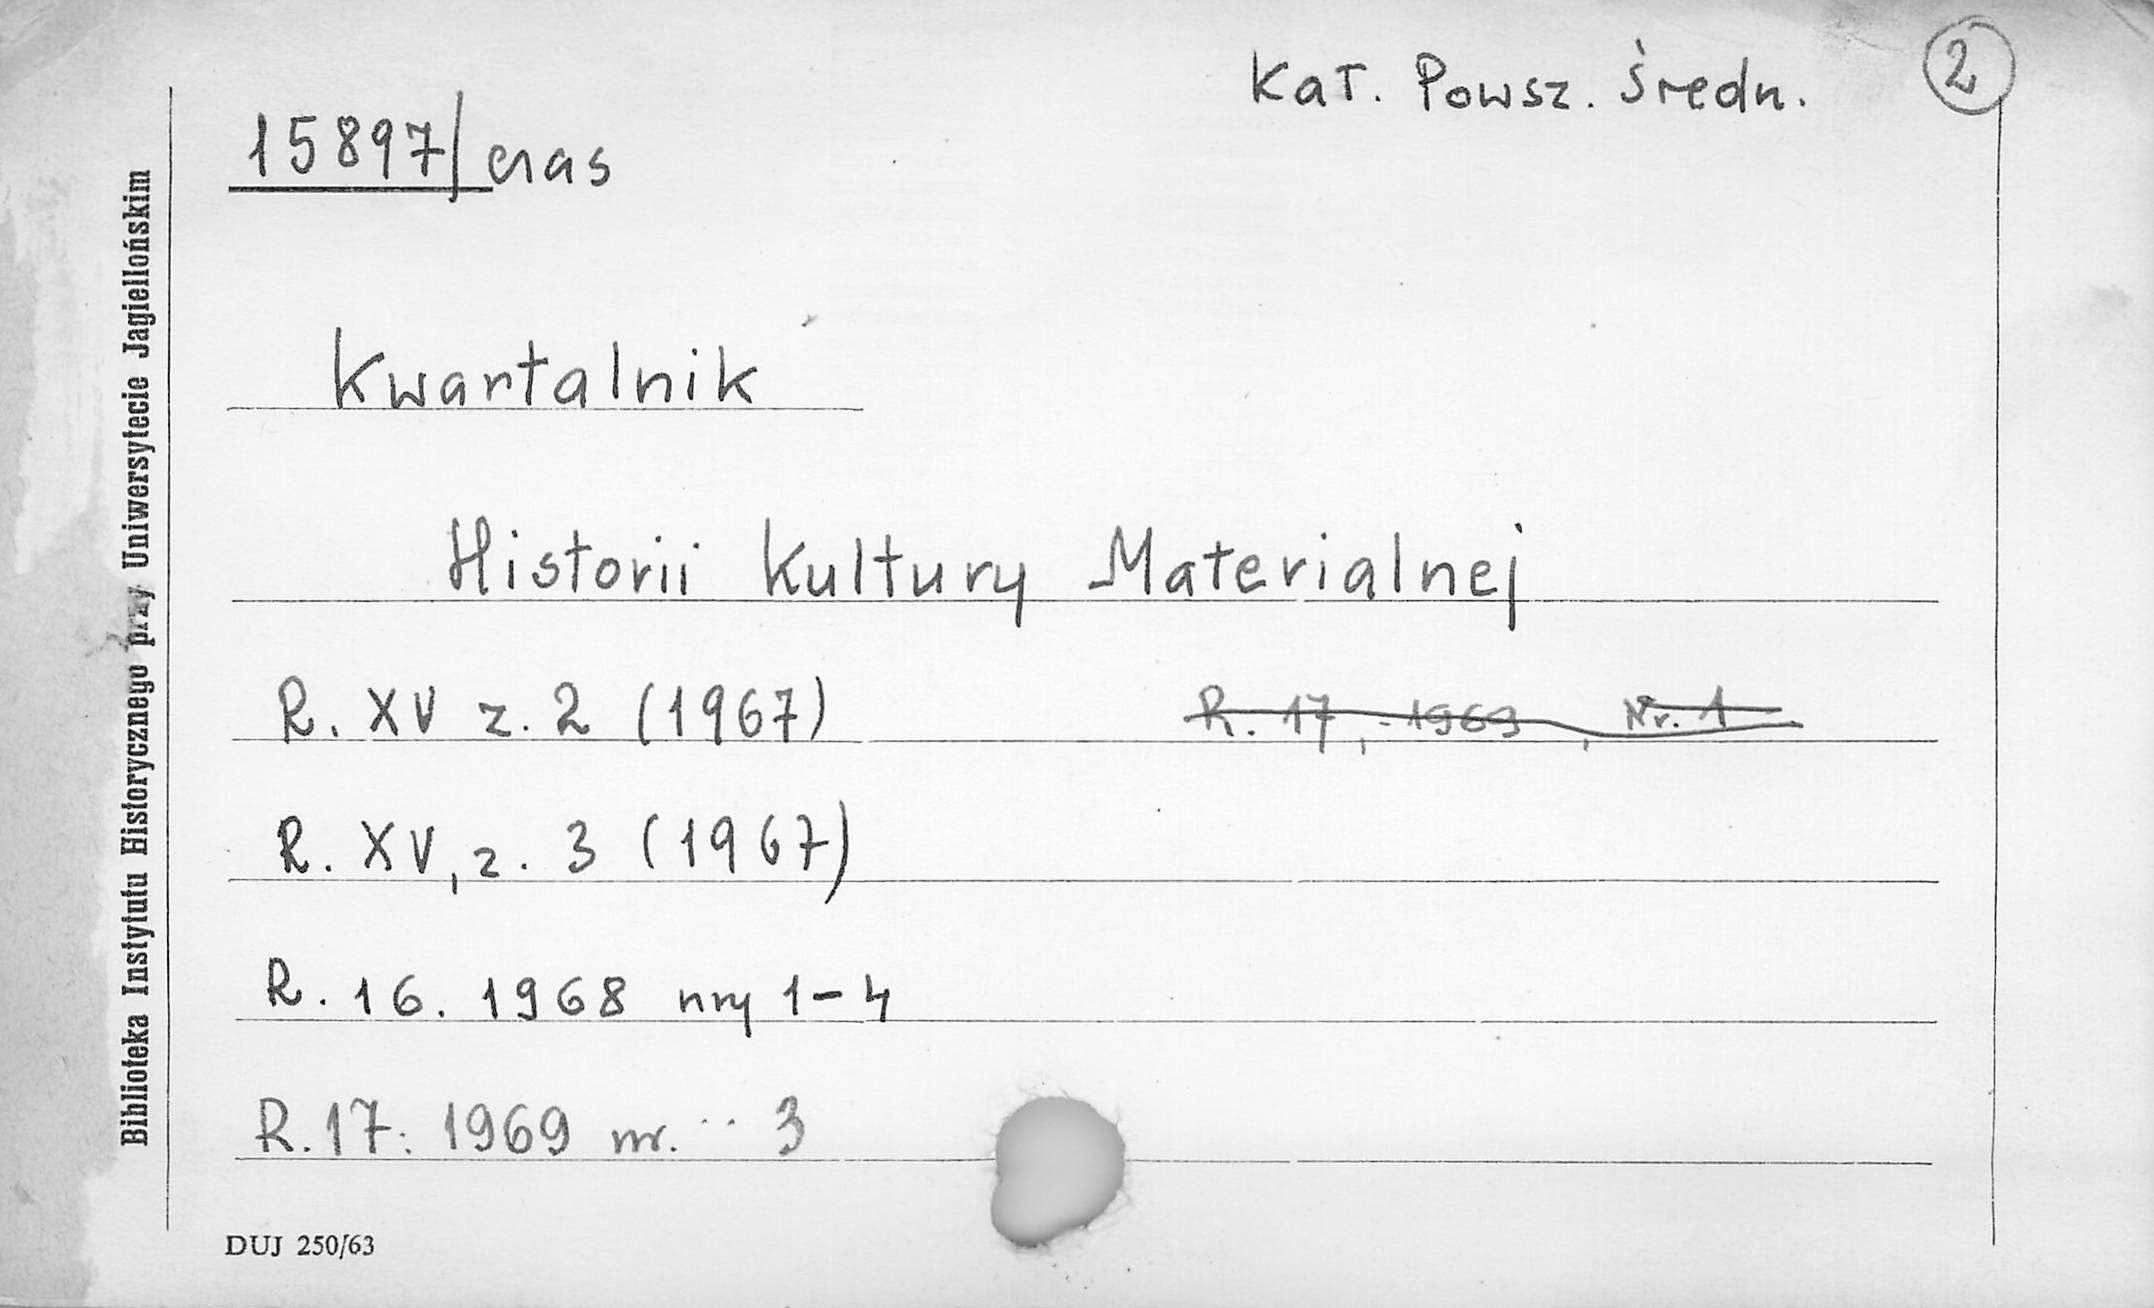 Kat. Powsz. Średn. 2
15897/czas
Kwartalnik
Historii Kultury Materialnej
R. XV z. 2 (1967) R. 17, 1969, Nr. 1
R. XV, z. 3 (1967)
R. 16. 1968 nry 1-4
R. 17: 1969 nr. 3
DUJ 250/63
Biblioteka Instytutu Historycznego przy Uniwersytecie Jagiellońskim